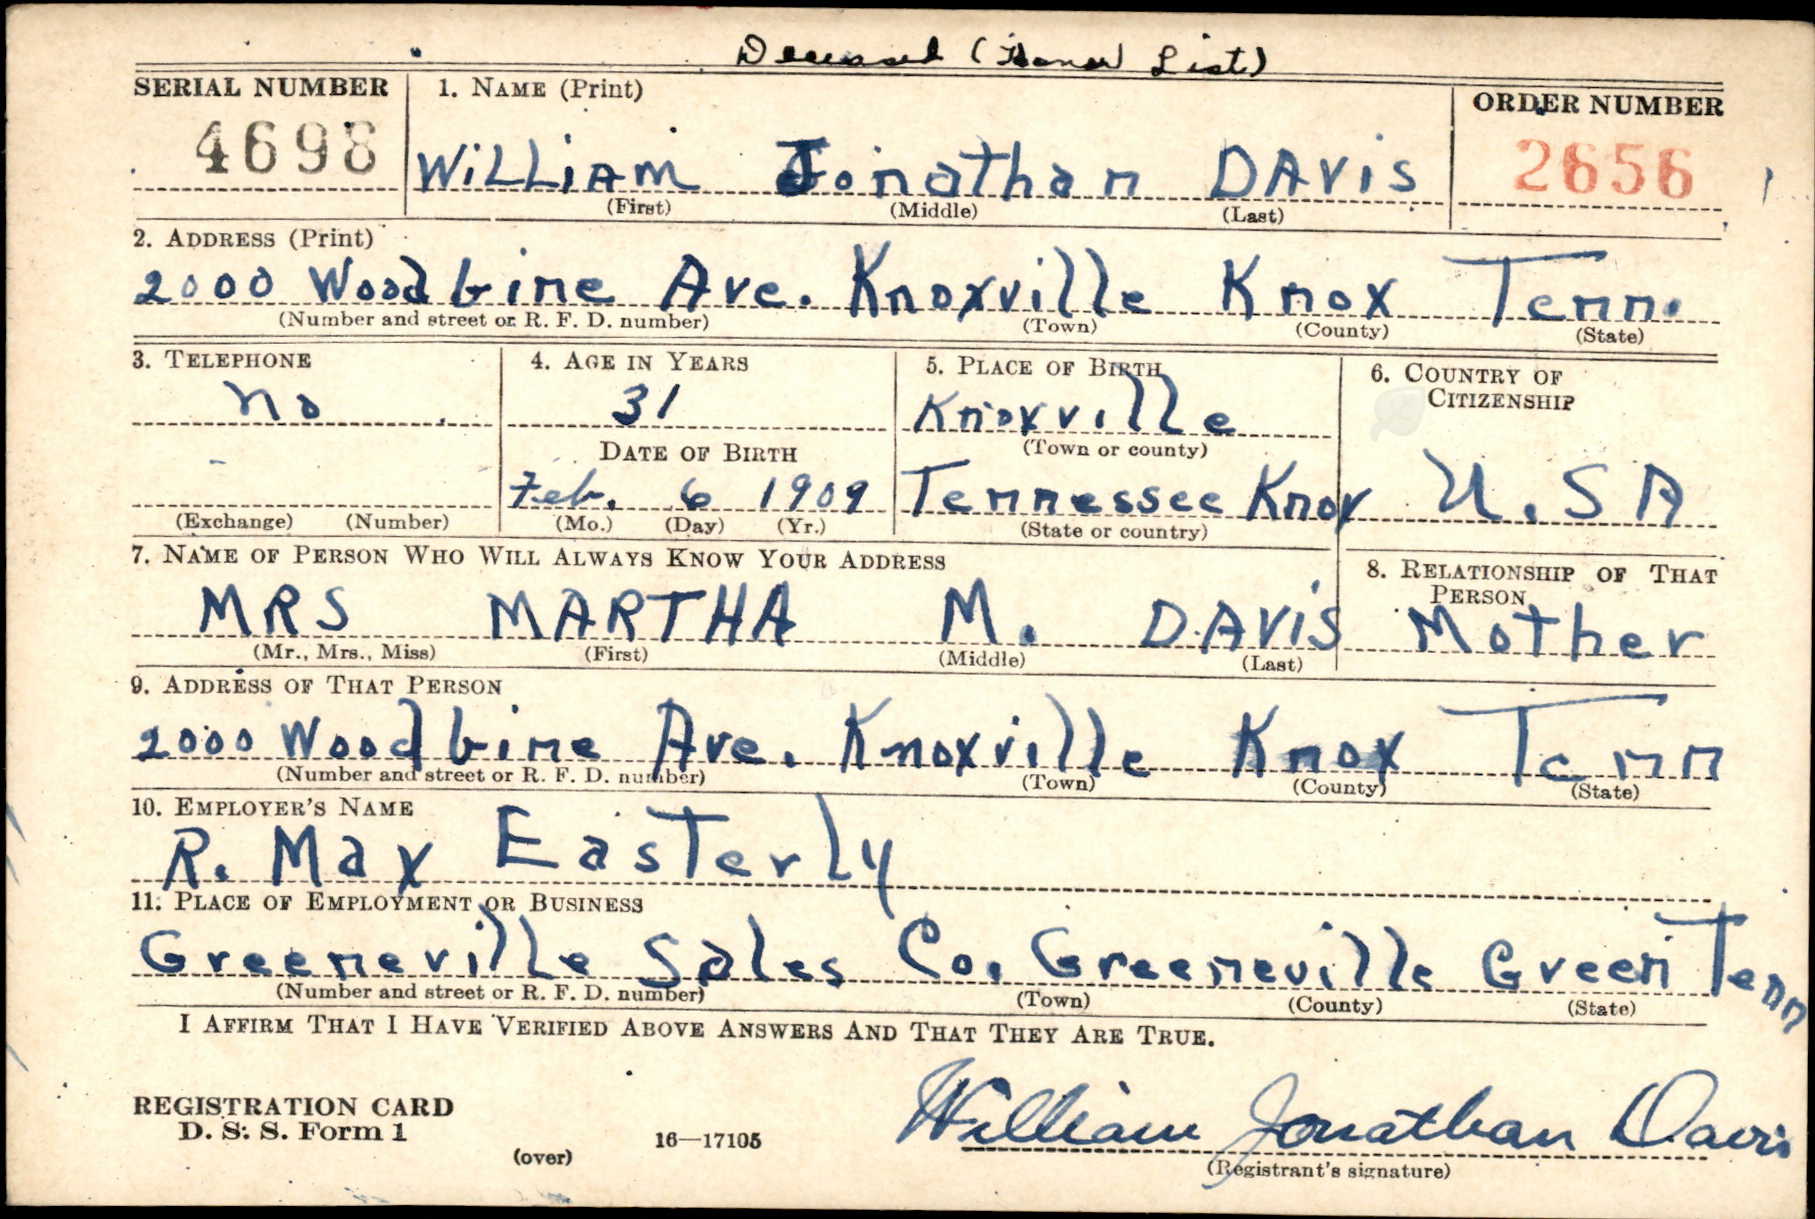 Deceased (Honor List)
SERIAL NUMBER
1. NAME (Print)
ORDER NUMBER
4698
WiLLiAM Jonathan DAViS
2656
(First) (Middle) (Last)
2. ADDRESS (Print)
2000 Woodbine Ave. Knoxville Knox Tenn.
(Number and street or R. F. D. number) (Town) (County) (State)
3. TELEPHONE
4. AGE IN YEARS
5. PLACE OF BIRTH
6. COUNTRY OF
CITIZENSHIP
no
31
Knoxville
DATE OF BIRTH
(Town or county)
Feb. 6 1909
Tennessee Knox
U.SA
(Exchange) (Number)
(Mo.) (Day) (Yr.)
(State or country)
7. NAME OF PERSON WHO WILL ALWAYS KNOW YOUR ADDRESS
8. RELATIONSHIP OF THAT
PERSON
MRS MARTHA M. DAViS
Mother
(Mr., Mrs., Miss) (First) (Middle) (Last)
9. ADDRESS OF THAT PERSON
2000 Woodbine Ave. Knoxville Knox Tenn
(Number and street or R. F. D. number) (Town) (County) (State)
10. EMPLOYER'S NAME
R. Max Easterly
11. PLACE OF EMPLOYMENT OR BUSINESS
Greeneville Sales Co. Greeneville Green Tenn
(Number and street or R. F. D. number) (Town) (County) (State)
I AFFIRM THAT I HAVE VERIFIED ABOVE ANSWERS AND THAT THEY ARE TRUE.
REGISTRATION CARD
D. S. S. Form 1
(over)
16—17105
William Jonathan Davis
(Registrant's signature)